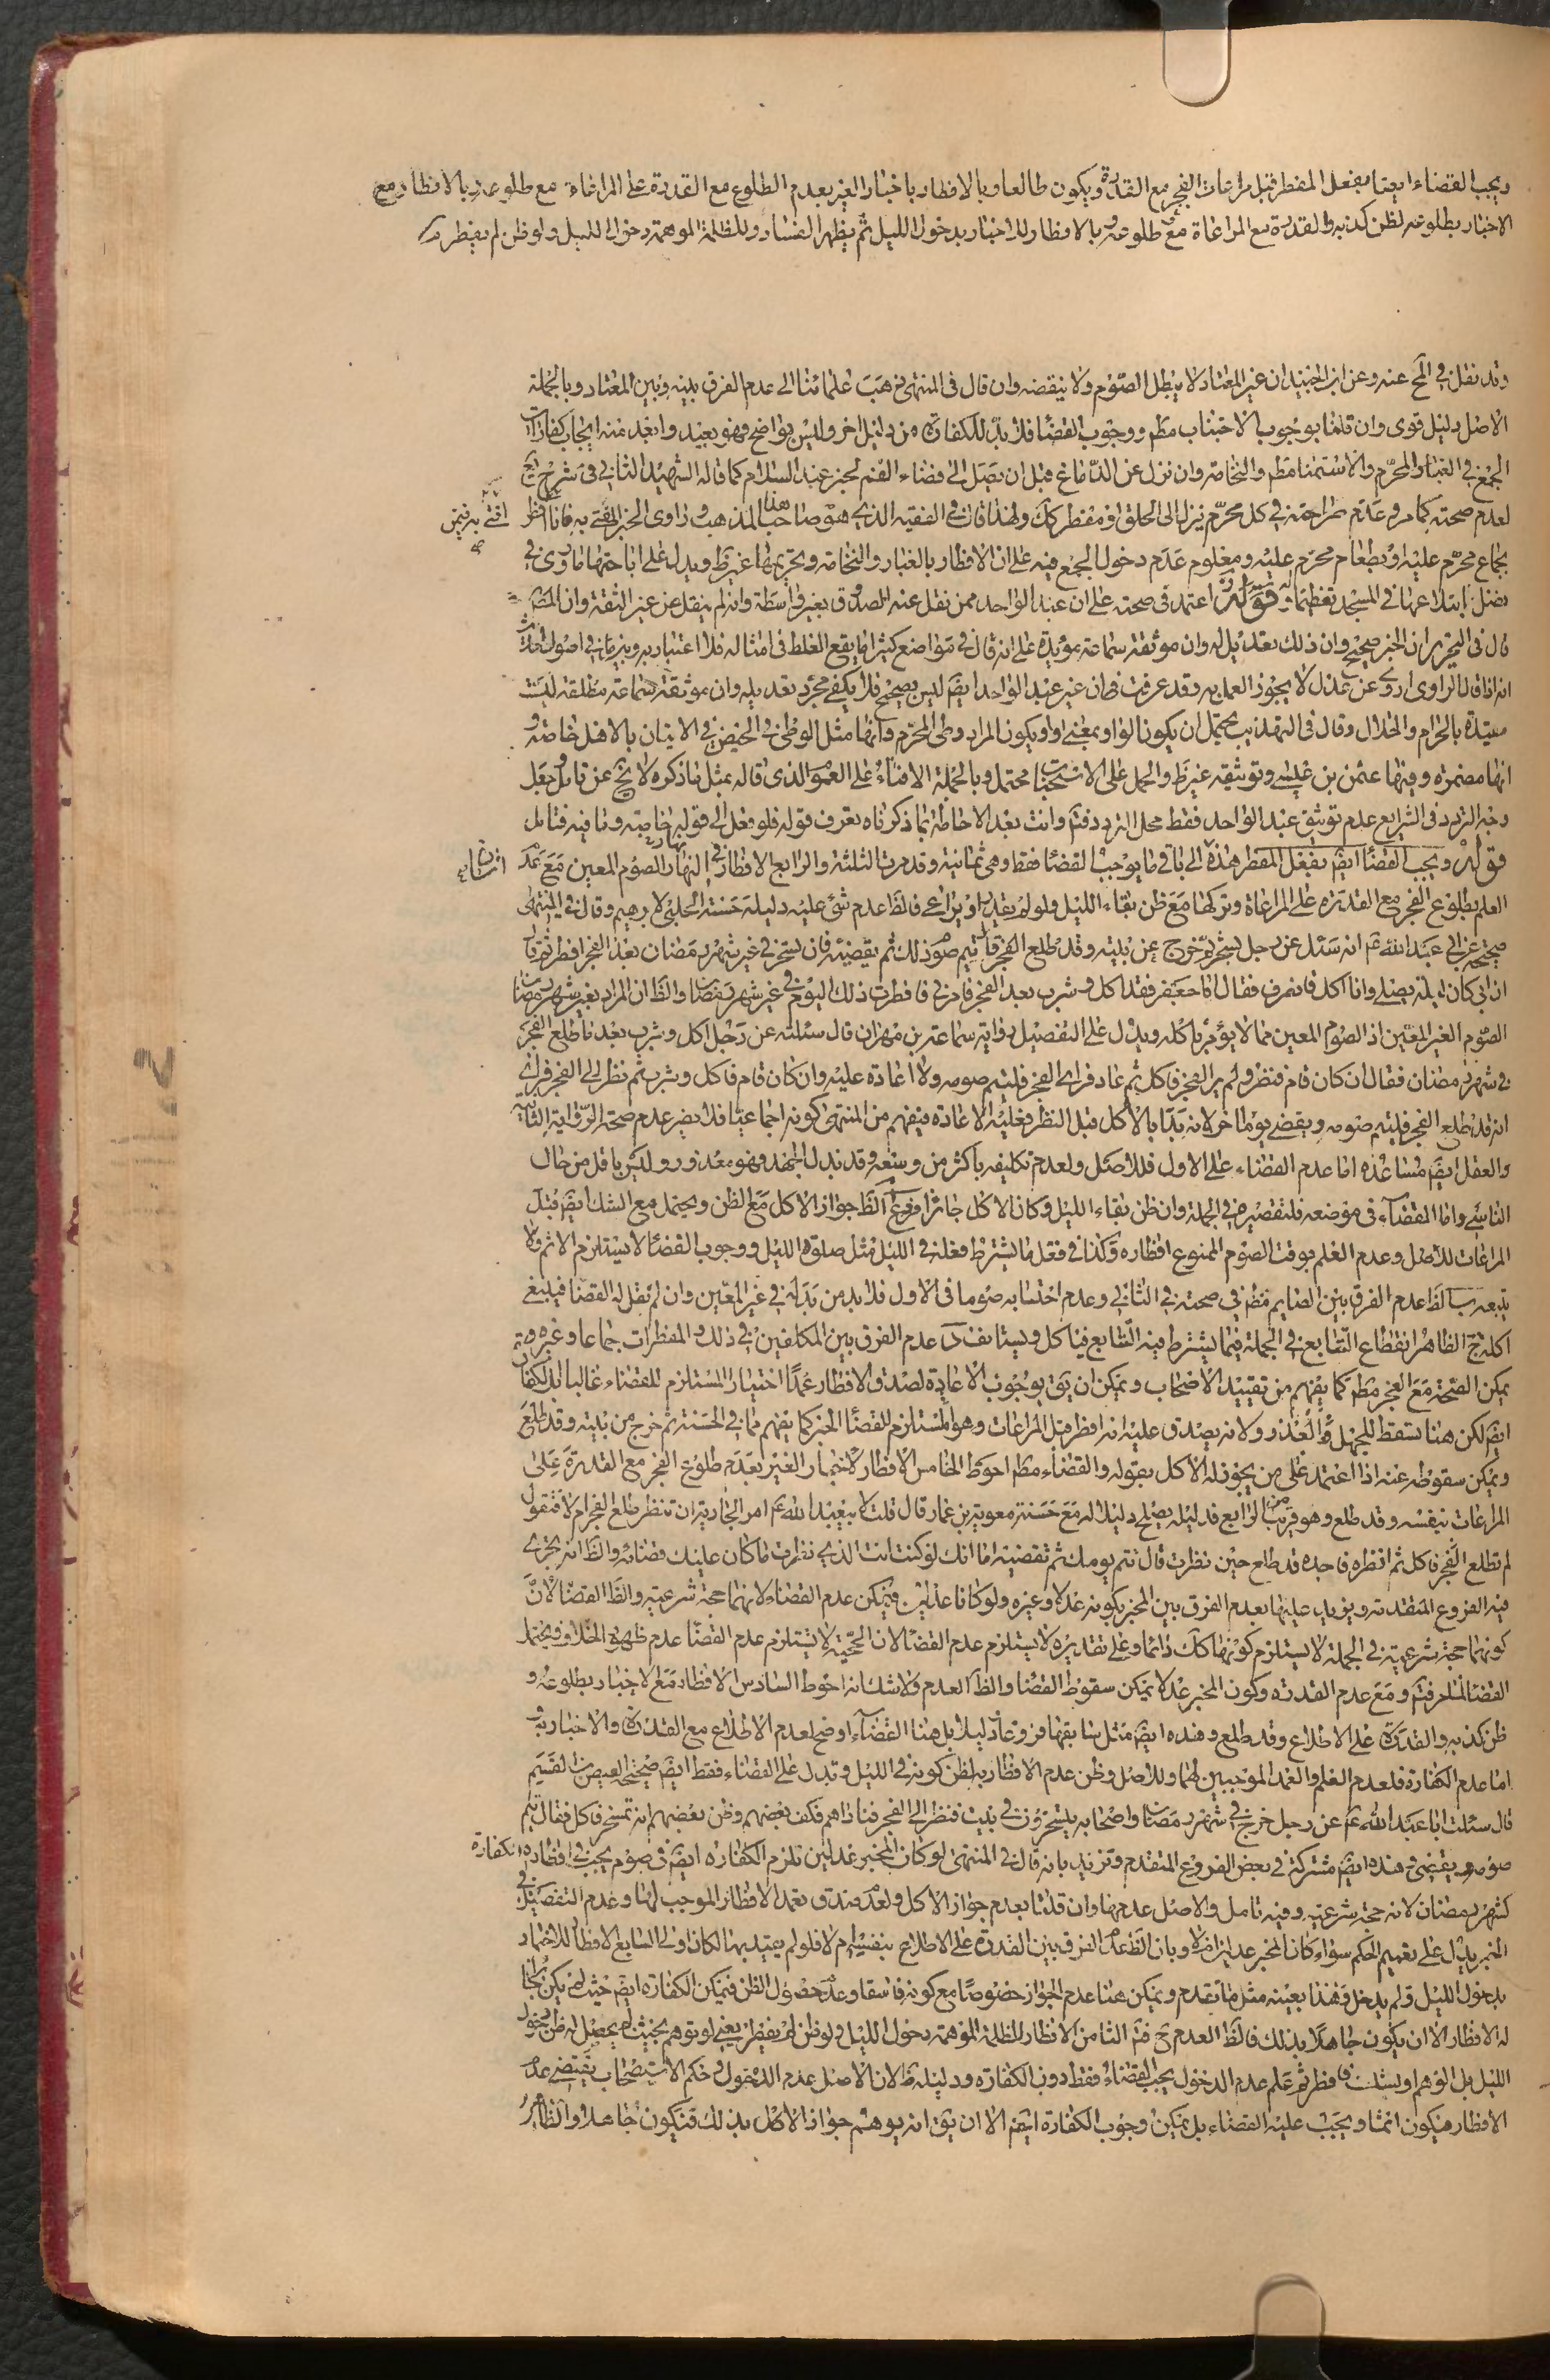 ويجب القضاء ايضا بفعل المفطر قبل مراعات الفجر مع القدرة ويكون طالعا وبالافطار باخبار الغير بعدم الطلوع مع القدرة على المراعاة مع طلوعه وبالافطار مع
الاخبار بطلوعه لظن كذبه والقدرة مع المراعاة مع طلوعه وبالافطار للاخبار بدخول الليل ثم يظهر الفساد وللظلمة الموهمة دخول الليل ولو ظن لم يفطر
وقد نقل في عنه وعن ابن الجنيد ان غير المعتاد لا يبطل الصوم ولا ينقضه وان قال في المنتهى ذهب علمائنا الى عدم الفرق بينه وبين المعتاد وبالجملة
الاصل دليل قوى وان قلنا بوجوب الاجتناب مطم ووجوب القضا فلا بد للكفارة من دليل اخر وليس بواضح وهو بعيد وابعد منه ايجاب كفارات
الجمع في الغبار المحرم والاستمنا مطم والنخامة وان نزل عن الدماغ قبل ان يصل الى فضاء الفم لخبر عبد السلام كما قاله الشهيد الثاني في شرح يع
لعدم صحته كما مر وعدم صراحته في كل محرم نزل الى الحلق او مفطر كك ولهذا قال في الفقيه الذي هو صاحب هذا المذهب وراوى الخبر افتى به فيمن افطر
بجماع محرم عليه او بطعام محرم عليه ومعلوم عدم دخول الجمع فيه على ان الافطار بالغبار والنخامة وتحريمها غير ظ ويدل على اباحتها ما روى في
فضل ابتلاعها في المسجد تعظيما له قوله اعتمد في صحته على ان عبد الواحد ممن نقل عنه الصدوق بغير واسطة وانه لم ينقل عن غير الثقة وان المصنف
قال في التحرير ان الخبر صحيح وان ذلك تعديل له وان موثقة سماعة مؤيدة على انه قال في مواضع كثيرا ما يقع الغلط في امثاله فلا اعتبار به
انه اذا قال الراوى اروى عن عدل لا يجوز العمل به وقد عرفت ان غير عبد الواحد ايضم ليس بصحيح فلا يكفي مجرد تعديله وان موثقة سماعة مطلقة ليست
مقيدة بالحرام والحلال وقال في التهذيب يحتمل ان يكون الواو بمعنى او او يكون المراد وطى المحرم وانها مثل الوطى في الحيض في الاتيان بالاهل خاصة و
انها مضمرة وفيها عثمن بن عيسى وتوثيقه غير ظ والحمل على الاستحباب محتمل وبالجملة الافتاء على العمل الذى قاله بمثل ما ذكره لا يخ عن تامل جعل
وجه التردد في الشرايع عدم توثيق عبد الواحد فقط محل التردد فتم وانت بعد الاحاطة بما ذكرناه تعرف قوله فلو فعل الى قوله خاصة وما فيه فتامل
قوله ويجب القضا ايضم بفعل المفطر هذه الى باقى ما يوجب القضا فقط وهى ثمانية وقد مرت الثلثة والرابع الافطار في النهار للصوم المعين مع عدم
العلم بطلوع الفجر مع القدرة على المراعاة وتركها مع ظن بقاء الليل ولو لم يقدر او يراعى فالظ عدم شئ عليه دليله حسنة الحلبى لابرهيم وقال في المنتهى
صحيحة عن ابى عبد الله عم انه سئل عن رجل تسحر ثم خرج من بيته وقد طلع الفجر قال يتم صومه ذلك ثم يقضيه فان تسحر في غير شهر رمضان بعد الفجر افطر ثم قال
ان ابى كان ليلة يصلى وانا اكل فانصرف فقال اما جعفر فقد اكل وشرب بعد الفجر فامرنى فافطرت ذلك اليوم في غير شهر رمضان والظ ان المراد بغير شهر رمضان
الصوم الغير المعين اذ الصوم المعين مما لا يؤمر باكله ويدل على التفصيل رواية سماعة بن مهران قال سئلته عن رجل اكل وشرب بعد ما طلع الفجر
في شهر رمضان فقال ان كان قام فنظر ولم ير الفجر فاكل ثم عاد فراى الفجر فليتم صومه ولا اعادة عليه وان كان قام فاكل وشرب ثم نظر الى الفجر فراى
انه قد طلع الفجر فليتم صومه ويقضى يوما اخر لانه بدا بالاكل قبل النظر فعليه الاعادة فيفهم من المنتهى كونه اجماعيا فلا يضر عدم صحة الرواية الثانية
والعقل ايضم مساعده اما عدم القضاء على الاول فللاصل ولعدم تكليفه باكثر من وسعه وقد بذل الجهد وهو معذور وليس باقل من حال
الناسى واما القضاء في موضعه فلتقصيره في الجملة وان ظن بقاء الليل وكان الاكل جائزا فروع آ الظ جواز الاكل مع الظن ويحتمل مع الشك ايضم قبل
المراعات للاصل وعدم العلم بوقت الصوم الممنوع افطاره وكذا في فعل ما يشترط فعله في الليل مثل صلوة الليل ووجوب القضا لا يستلزم الاثم ولا
يتبعه ب الظ عدم الفرق بين الصايم مطم في صحته في الثاني وعدم احتسابه صوما في الاول فلا بد من بدله في غير المعين وان لم نقل له القضا فيلبغى
اكله ج الظاهر انقطاع التتابع في الجملة فيما يشترط فيه التتابع فياكل ويستانف د عدم الفرق بين المكلفين في ذلك والمفطرات جماعا وغيره ه
يمكن الصحة مع الفجر مطم كما يفهم من تقييد الاصحاب ويمكن ان يق بوجوب الاعادة لصدق الافطار عمدا اختيارا المستلزم للقضاء غالبا بل الكفارة
ايضم لكن هنا تسقط للجهل والعذر ولانه يصدق عليه انه افطر قبل المراعات وهو المستلزم للقضا الخبر كما يفهم مما في الحسنة ثم خرج من بيته وقد طلع
ويمكن سقوطه عنه اذا اعتمد على من يجوز له الاكل بقوله والقضاء مطم احوط الخامس الافطار لاخبار الغير بعدم طلوع الفجر مع القدرة على
المراعات بنفسه وقد طلع وهو قريب من الرابع فدليله يصلح دليلا له مع حسنة معوية بن عمار قال قلت لابى عبد الله عم امر الجارية ان تنظر طلع الفجر ام لا فتقول
لم يطلع الفجر فاكل ثم انظره فاجده قد طلع حين نظرت قال تتم يومك ثم تقضيه اما انك لو كنت انت الذى نظرت ما كان عليك قضائه والظ انه يجرى
فيه الفروع المتقدمة ويزيد عليها بعدم الفرق بين المخبر بكونه عدلا وغيره ولو كانا عدلين فيمكن عدم القضاء لانهما حجة شرعية والظ القضا لان
كونهما حجة شرعية في الجملة لا يستلزم كونهما كك دائما وعلى تقديره لا يستلزم عدم القضا لان الحجية لا تستلزم عدم القضا عدم ظهور الخلاف ويحتمل
القضا لما مر فتم ومع عدم القدرة وكون المخبر عدلا يمكن سقوط القضا والظ العدم ولا شك انه احوط السادس الافطار مع الاخبار بطلوعه و
ظن كذبه والقدرة على الاطلاع وقد طلع وهذه ايضم مثل سابقها فروعا ودليلا بل هنا القضاء اوضح لعدم الاطلاع مع القدرة والاخبار به
اما عدم الكفارة فلعدم العلم والعمد الموجبين لها وللاصل وظن عدم الافطار به لظن كونه في الليل وتدل على القضاء فقط ايضم صحيحة العيص بن القسيم
قال سئلت ابا عبد الله عم عن رجل خرج في شهر رمضان واصحابه يتسحرون في بيت فنظر الى الفجر فناداهم فكف بعضهم وظن بعضهم انه تسخر فاكل فقال يتم
صومه ويقضى هذه ايضم مشتركة في بعض الفروع المتقدم وتزيد بانه قال في المنتهى لو كان المخبر عدلين تلزم الكفارة ايضم في صوم يجب في افطاره الكفارة
كشهر رمضان لانه حجة شرعية وفيه تامل والاصل عدمها وان قلنا بعدم جواز الاكل ولعدم صدق تعمد الافطار الموجب لها وعدم التفصيل في
الخبر يدل على تعميم الحكم سواء كان المخبر عدلين ام لا وبان الظ عدم الفرق بين القدرة على الاطلاع بنفسه ام لا فلو لم يقيد بها لكان اولى السابع الافطار للاخبار
بدخول الليل ولم يدخل فهذا بعينه مثل ما تقدم ويمكن هنا عدم الجواز خصوصا مع كونه فاسقا وعدم حصول الظن فيمكن الكفارة ايضم حيث لم يكن جائزا
له الافطار الا ان يكون جاهلا بذلك فالظ العدم ح فتم الثامن الافطار للظلمة الموهمة دخول الليل ولو ظن لم يفطر يعنى لو توهم بحيث لم يحصل له ظن بدخول
الليل بل الوهم او يشك فافطر ثم علم عدم الدخول يجب القضاء فقط دون الكفارة ودليله ظ لان الاصل عدم الدخول وحكم الاستصحاب يقتضى عدم
الافطار فيكون اثما ويجب عليه القضاء بل يمكن وجوب الكفارة ايضم الا ان يق انه يوهم جواز الاكل بذلك فيكون جاهلا والظاهر